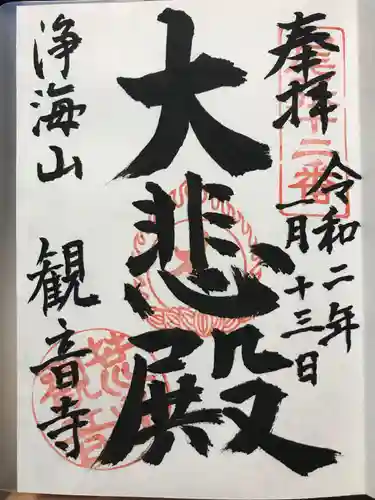 奉拝
令和二年
一月十三日
大悲殿
浄海山
観音寺